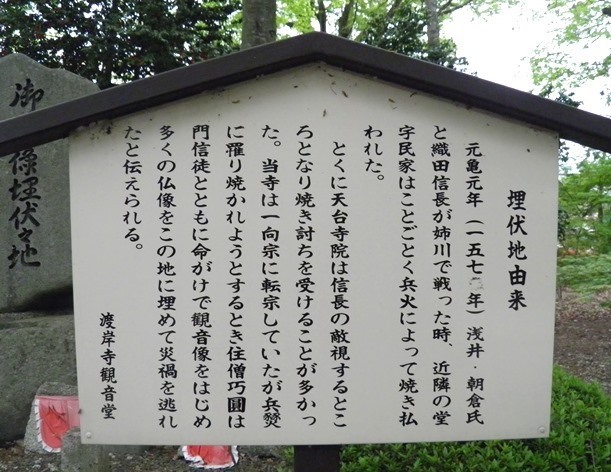 埋伏地由来
元亀元年(一五七〇年)浅井・朝倉氏
と織田信長が姉川で戦った時、近隣の堂
宇民家はことごとく兵火によって焼き払
われた。
とくに天台寺院は信長の敵視するとこ
ろとなり焼き討ちを受けることが多かっ
た。当寺は一向宗に転宗していたが兵燹
に罹り焼かれようとするとき住僧巧圓は
門信徒とともに命がけで観音像をはじめ
多くの仏像をこの地に埋めて災禍を逃れ
たと伝えられる。
渡岸寺觀音堂
御像埋伏之地